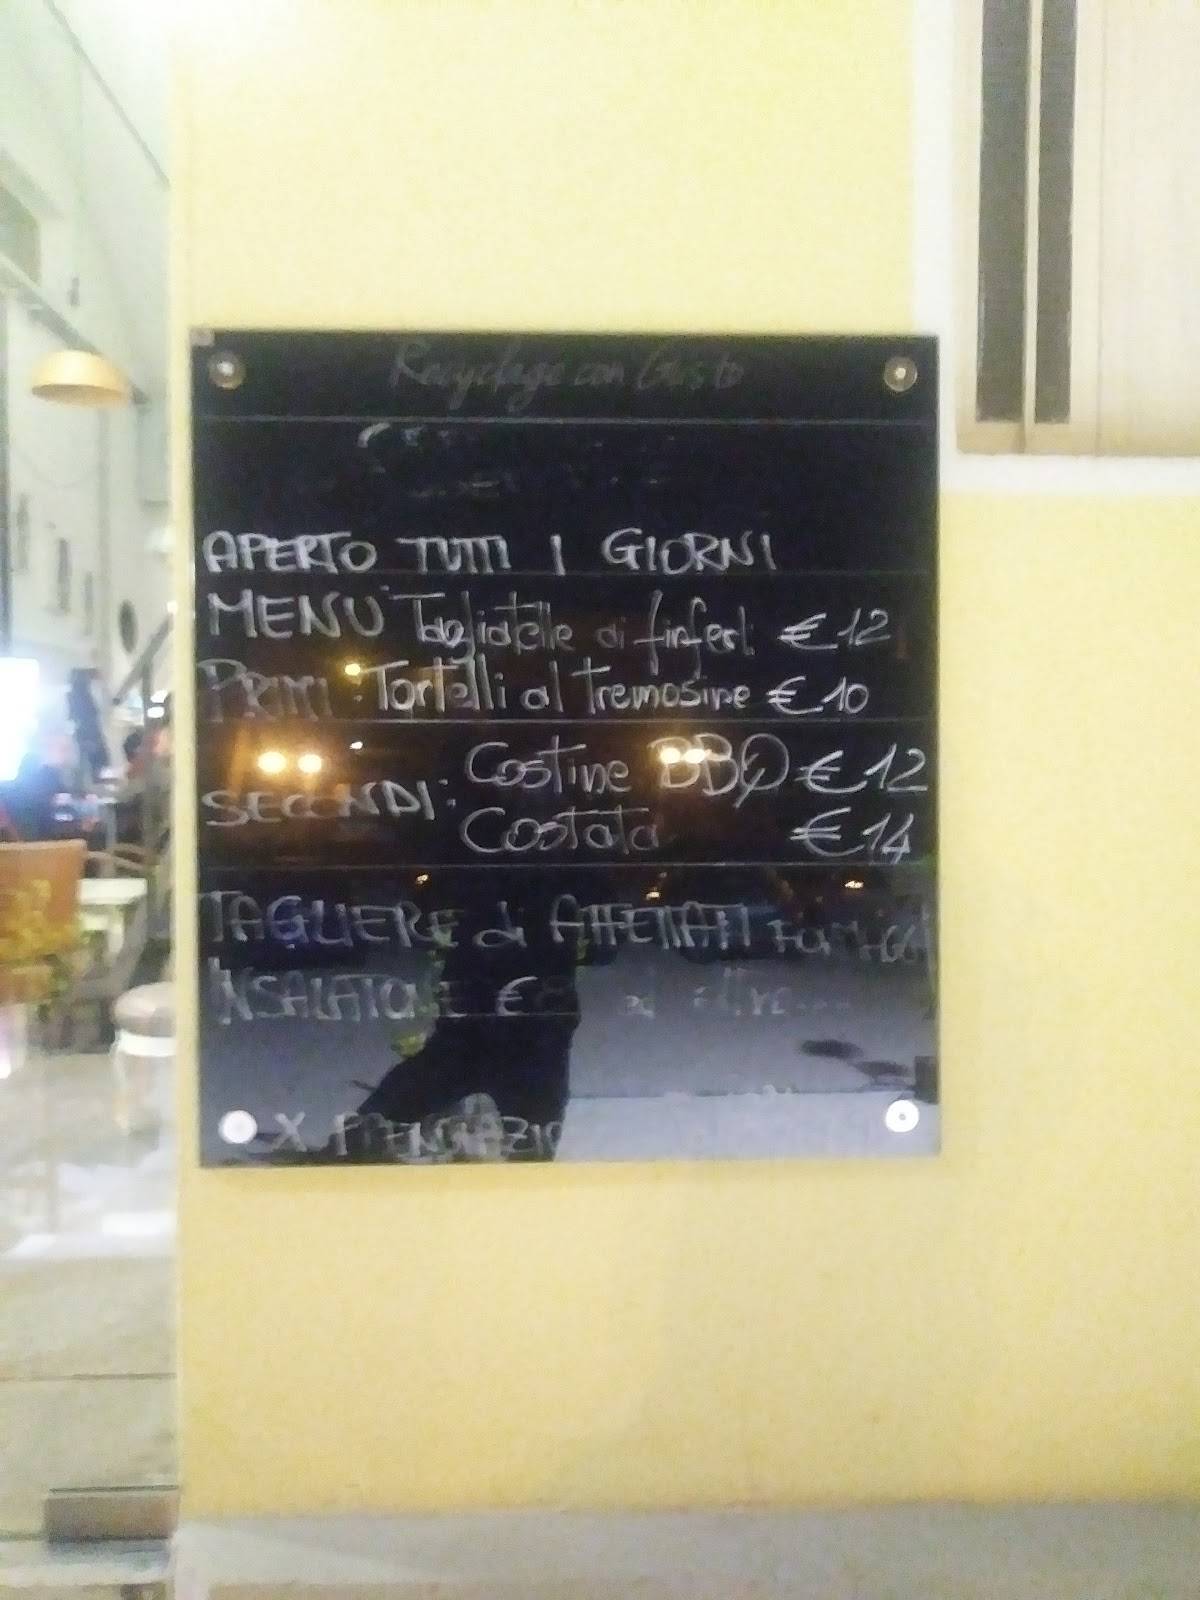 Recyclage con Gusto
APERTO TUTTI I GIORNI
MENÙ Tagliatelle ai finferli €12
PRIMI: Tortelli al Tremosine €10
SECONDI: Costine BBQ €12
Costata €14
TAGLIERE di AFFETTATI
INSALATONE €8
X PRENOTAZIO